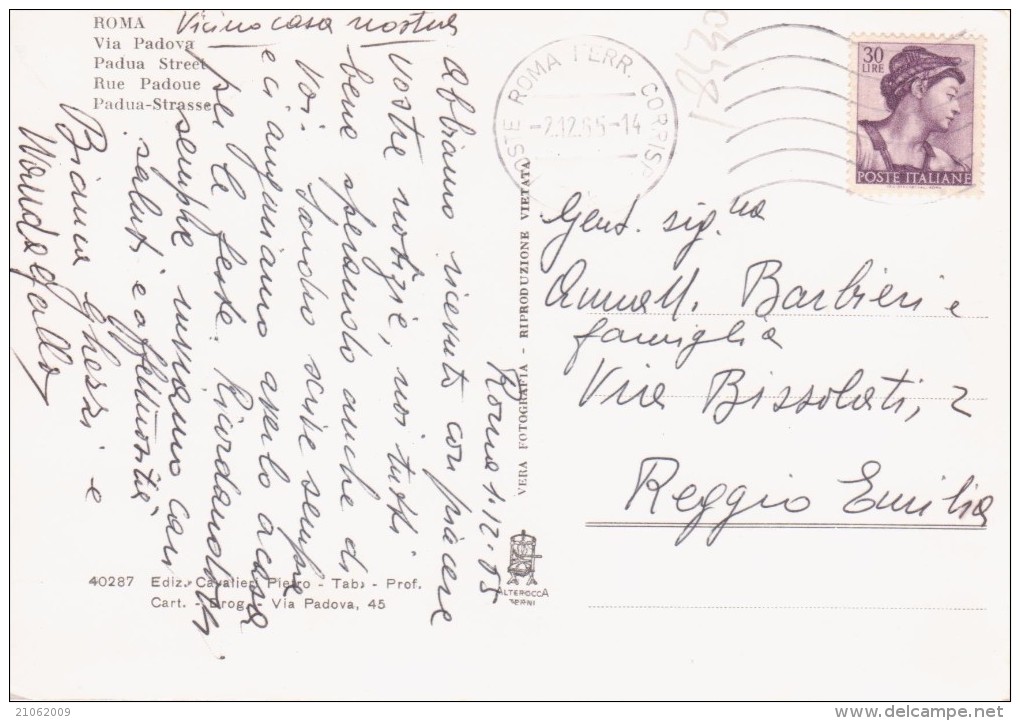 ROMA
Via Padova
Padua Street
Rue Padoue
Padua-Strasse
Vicino casa nostra
Roma 1.12.65
Abbiamo ricevuto con piacere
vostre notizie, noi tutti
bene sperando anche di
voi. Sandro scrive sempre
e ci auguriamo averlo a casa
per le feste. Ricordandovi
sempre inviamo cari
saluti e affettuosità
Bianca Ghezzi e
Wanda Gallo
VERA FOTOGRAFIA - RIPRODUZIONE VIETATA
40287 Ediz. Cavalieri Pietro - Tab. - Prof.
Cart. - Drog. - Via Padova, 45
ALTEROCCA
TERNI
POSTE ROMA FERR. CORRISP.
-2.12.65-14
30
LIRE
POSTE ITALIANE
Gent. sig.na
Anna M. Barbieri e
famiglia
Via Bissolati, 2
Reggio Emilia
21062009
delcampe.net